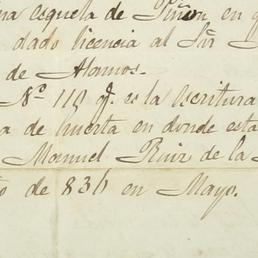 na esquela de Piñon, en q
dado licencia al Sor
de Alamos.
Nº 110 f. es la escritura
a de huerta en donde esta
Manuel Ruiz de la
de 836 en Mayo.